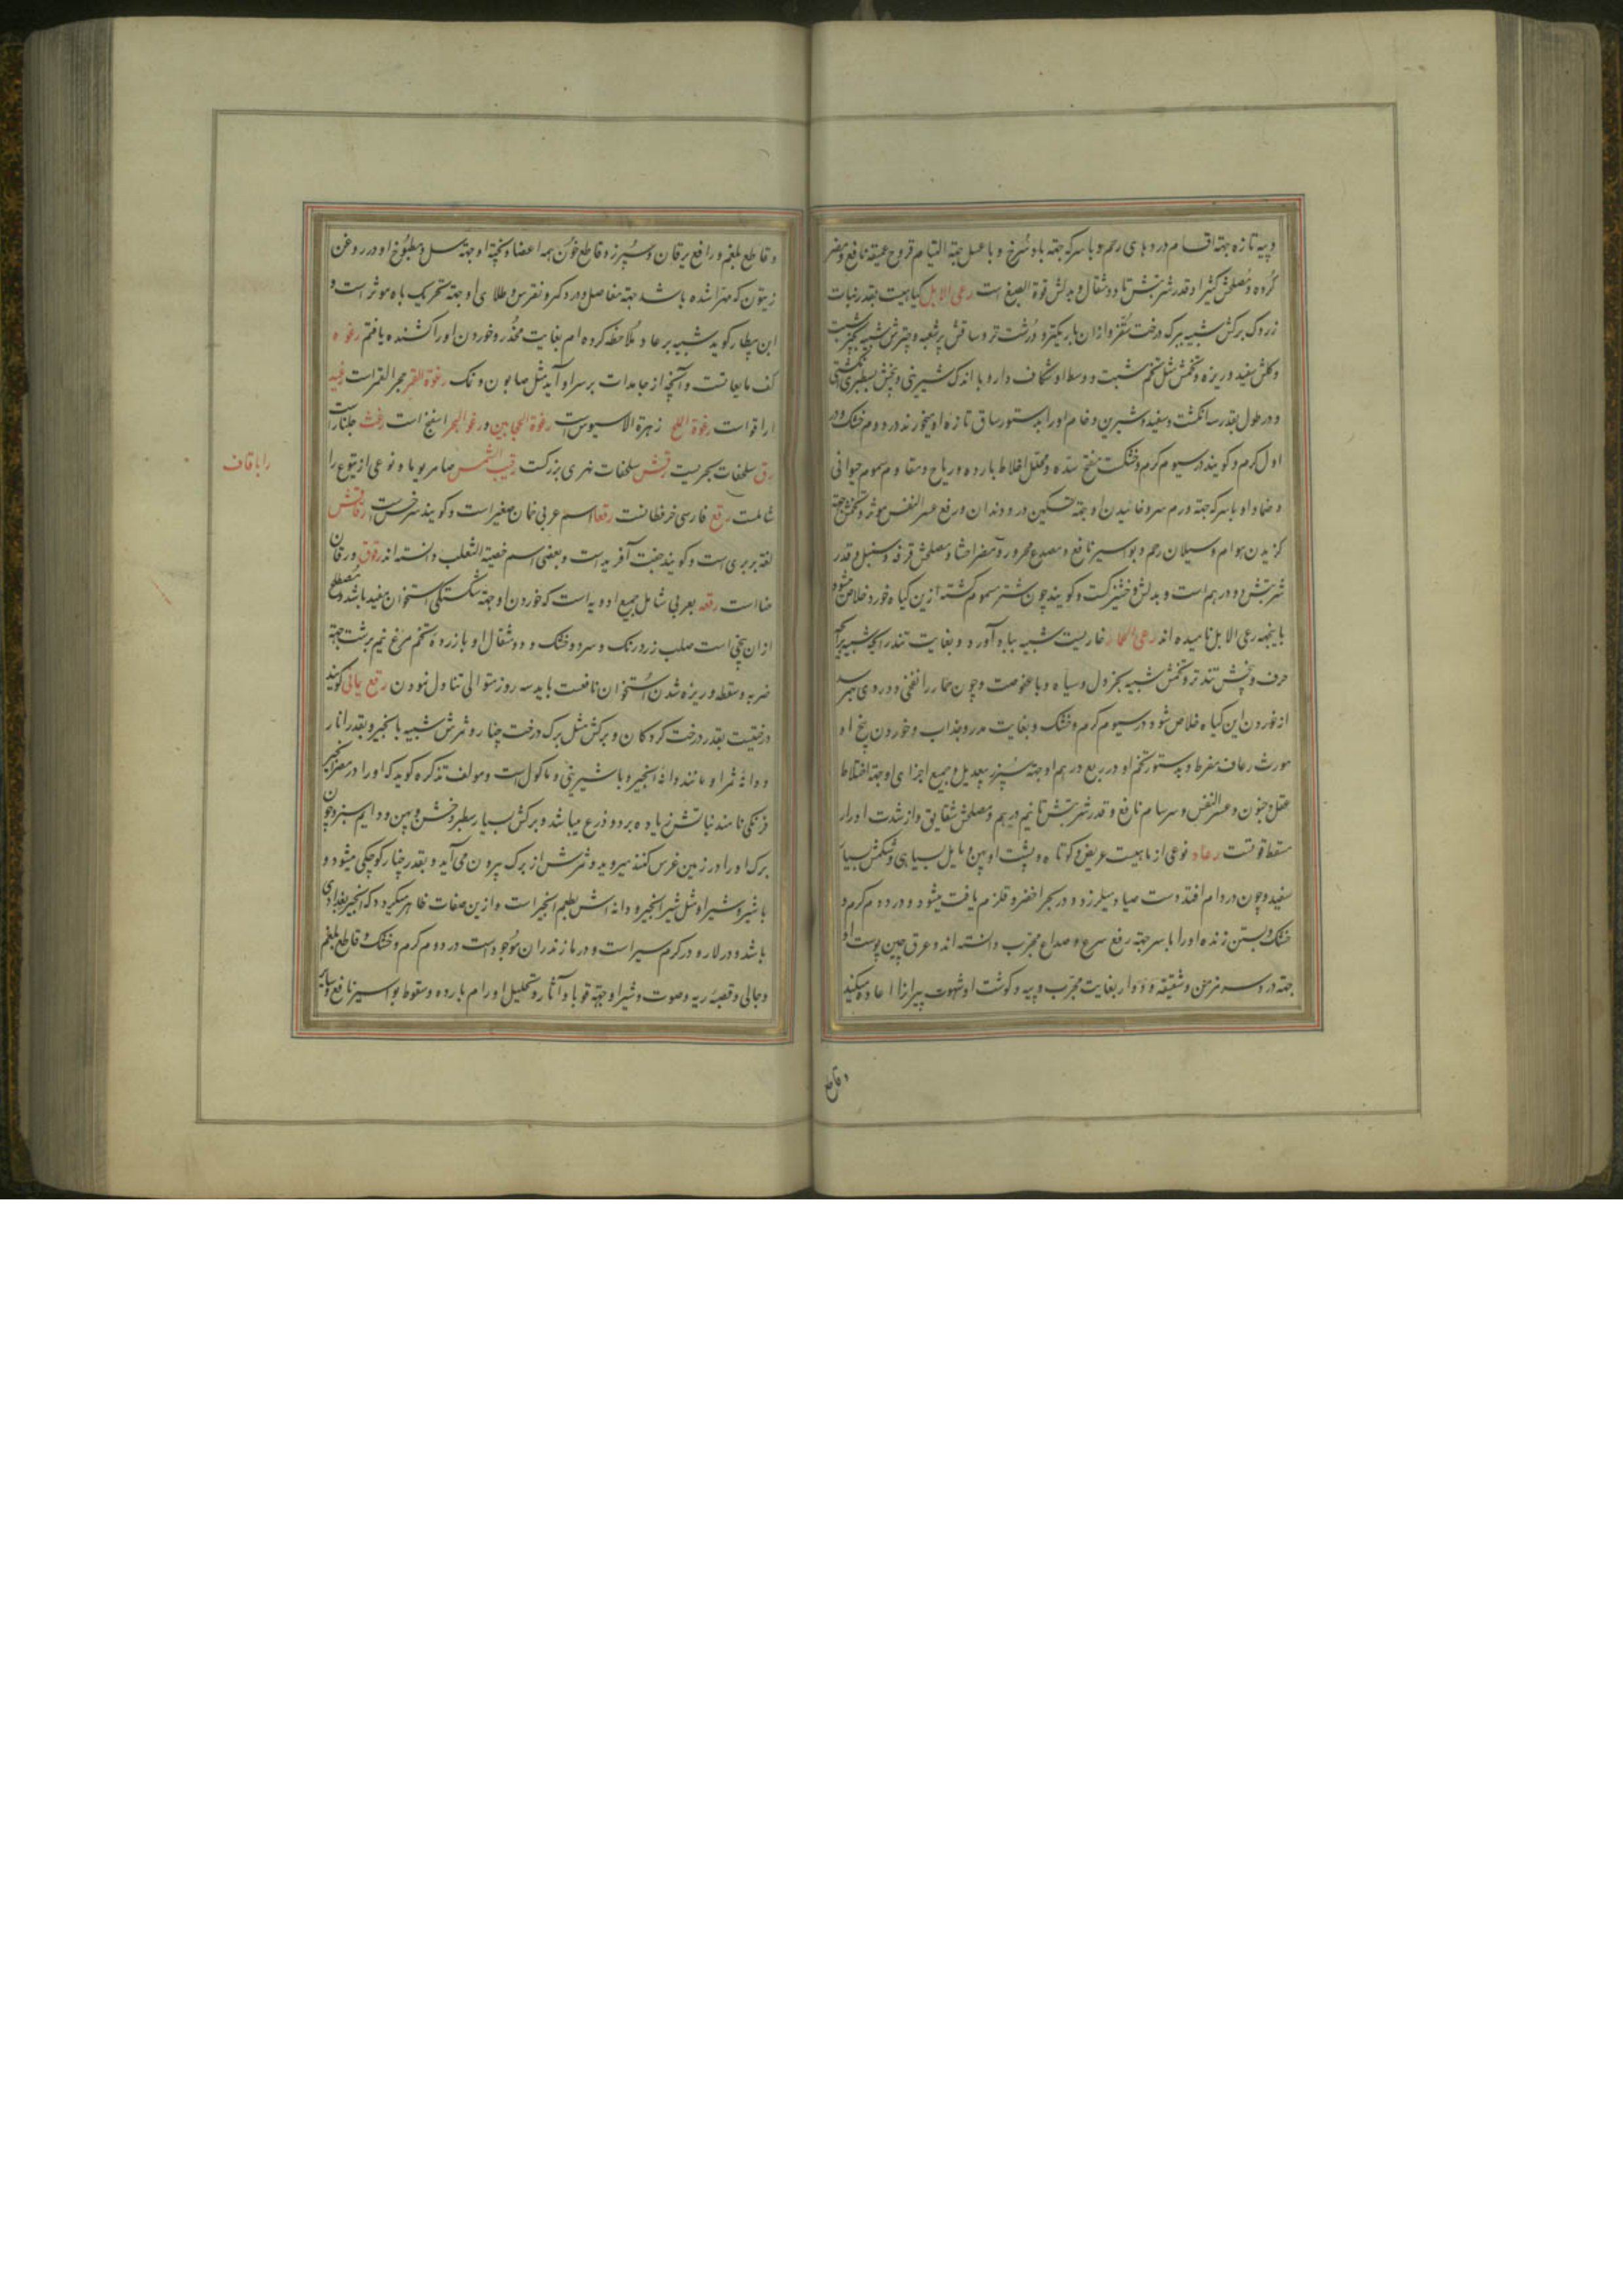 وپیه تازه جهة اقسام دردهای رحم و با سرکه جهة باد سرخ و با عسل جهة التیام قروح عمیقه نافع و مضر
کرده و مصلحش کثیرا و قدر شربتش تا دو مثقال و بدلش قوة الصبغ است رعی الابل کیاهیست بقدر نبات
زردک برکش شبیه ببرک درخت و ازان باریکتر و درشت تر و ساقش پرشعبه و چترش شبیه بچتر شبت
و کلش سفید و ریزه و تخمش مثل تخم شبت و وسط او شکاف دارد با اندک شیرینی و بیخش بسطبری انکشتی
و در طول بقدر سه انکشت و سفید و شیرین و خام او را بدستور ساق تازه او میخورند در دوم خشک و در
اول کرم و کویند در سیوم کرم و خشکست مفتح سده و محلل اخلاط بارده و ریاح و مقاوم سموم حیوانی
و ضماد او با سرکه جهة ورم سر و خائیدن او جهة تسکین درد دندان و رفع عسر النفس موثر و تخمش جهة
کزیدن هوام و سیلان رحم و بواسیر نافع و مصدع محرور و مضر احشا و مصلحش قرفه و سنبل و قدر
شربتش دو درهم است و بدلش و خشیزکست و کویند چون شتر مسموم کشته ازین کیاه خورد خلاص شود
باینجهه رعی الابل نامیده اند رعی الحمار خاریست شبیه بباد آورد و بغایت تند رایحه شبیه برایحه
حرف و بیخش تندتر و تخمش شبیه بخردل و سیاه و با عفوصت و چون حمار را نفخی و دردی بهمرسد
از خوردن این کیاه خلاص شود در سیوم کرم و خشک و بغایت مدر و جذاب و خوردن بیخ او
مورث رعاف مفرط و بدستور تخم او در ربع درهم او جهة سپرز بیعدیل و جمیع اجزای او جهة اختلاط
عقل و جنون و عسر النفس و سرسام نافع و قدر شربتش تا نیم درهم و مصلحش شقایق و از شدت ادرار
مسقط قوتست رعاد نوعی از ماهیست عریض و کوتاه و پشت او پهن و مایل بسیاهی و شکمش بسیار
سفید و چون در دام افتد دست صیاد میلرزد و در بحر اخضر و قلزم یافت میشود و در دوم کرم و
خشک و بستن زنده او را با سر جهة رفع سرع و صداع مجرب دانسته اند و عرق چین پوست او
جهة درد سر مزمن و شقیقه و دوار بغایت مجرب و پیه و کوشت او شهوت پیرانرا اعاده میکند
وقاطع
و قاطع بلغم و رافع یرقان و سپرز و قاطع خون همه اعضا و پخته او جهة سل و مطبوخ او در روغن
زیتون که مهرا شده باشد جهة مفاصل و درد کمر و نقرس و طلای او جهة تحریک باه موثر است و
ابن بیطار کوید شبیه برعاد ملاحظه کرده ام بغایت مخدر و خوردن او را کشنده یافتم رغوه
کف مایعاتست و آنچه از جامدات بر سر او آید مثل صابون و نمک رغوة القمر حجر القمر است رغید
اراقوا است رغوة الملح زهرة الاسیوس است رغوة الحجامین و رغو البحر اسفنج است رغث جلنار است
رق سلحفات بحریست رقش سلحفات نهری بزرکست رقیب الشمس صامریوما و نوعی از یتوع را
شاملست رقع فارسی خرفطانست رقعا اسم عربی خمان صغیر است و کویند سرخس است رقاقش
لغة بربری است و کویند جفت آفرید است و بعضی اسم خصیة الثعلب دانسته اند رقوق و رقان
حنا است رقعه بعربی شامل جمیع ادویه است که خوردن او جهة شکستکی استخوان مفید باشد و مصطلح
از ان بیخی است صلب زرد رنک و سرد و خشک و دو مثقال او با زرده تخم مرغ نیم برشت جهة
ضربه و سقطه و ریزه شدن استخوان نافعست باید سه روز متوالی تناول نمودن رقع یمانی کویند
درختیست بقدر درخت کردکان و برکش مثل برک درخت چنار و ثمرش شبیه بانجیر و بقدر انار
و دانه ثمر او مانند دانه انجیر و با شیرینی و ماکول است و مولف تذکره کوید که او را در مصر انجیر
فرنکی نامند نباتش زیاده بر دو ذرع میباشد و برکش بسیار سطبر و خشن و پهن و دایم سبز و چون
برک او را در زمین غرس کنند میروید و ثمرش از برک بیرون می آید و بقدر خیار کوچکی میشود و
با شیر و شیر او مثل شیر انجیر و دانه اش بطعم انجیر است و ازین صفات ظاهر میکردد که انجیر بغدادی
باشد و در لار و در کرم سیر است و در مازندران موجود است در دوم کرم و خشک و قاطع بلغم
و جالی و قصبه ریه و صوت و شیر او جهة قوبا و آثار و تحلیل اورام بارده و سقوط بواسیر نافع و سایر
را با قاف